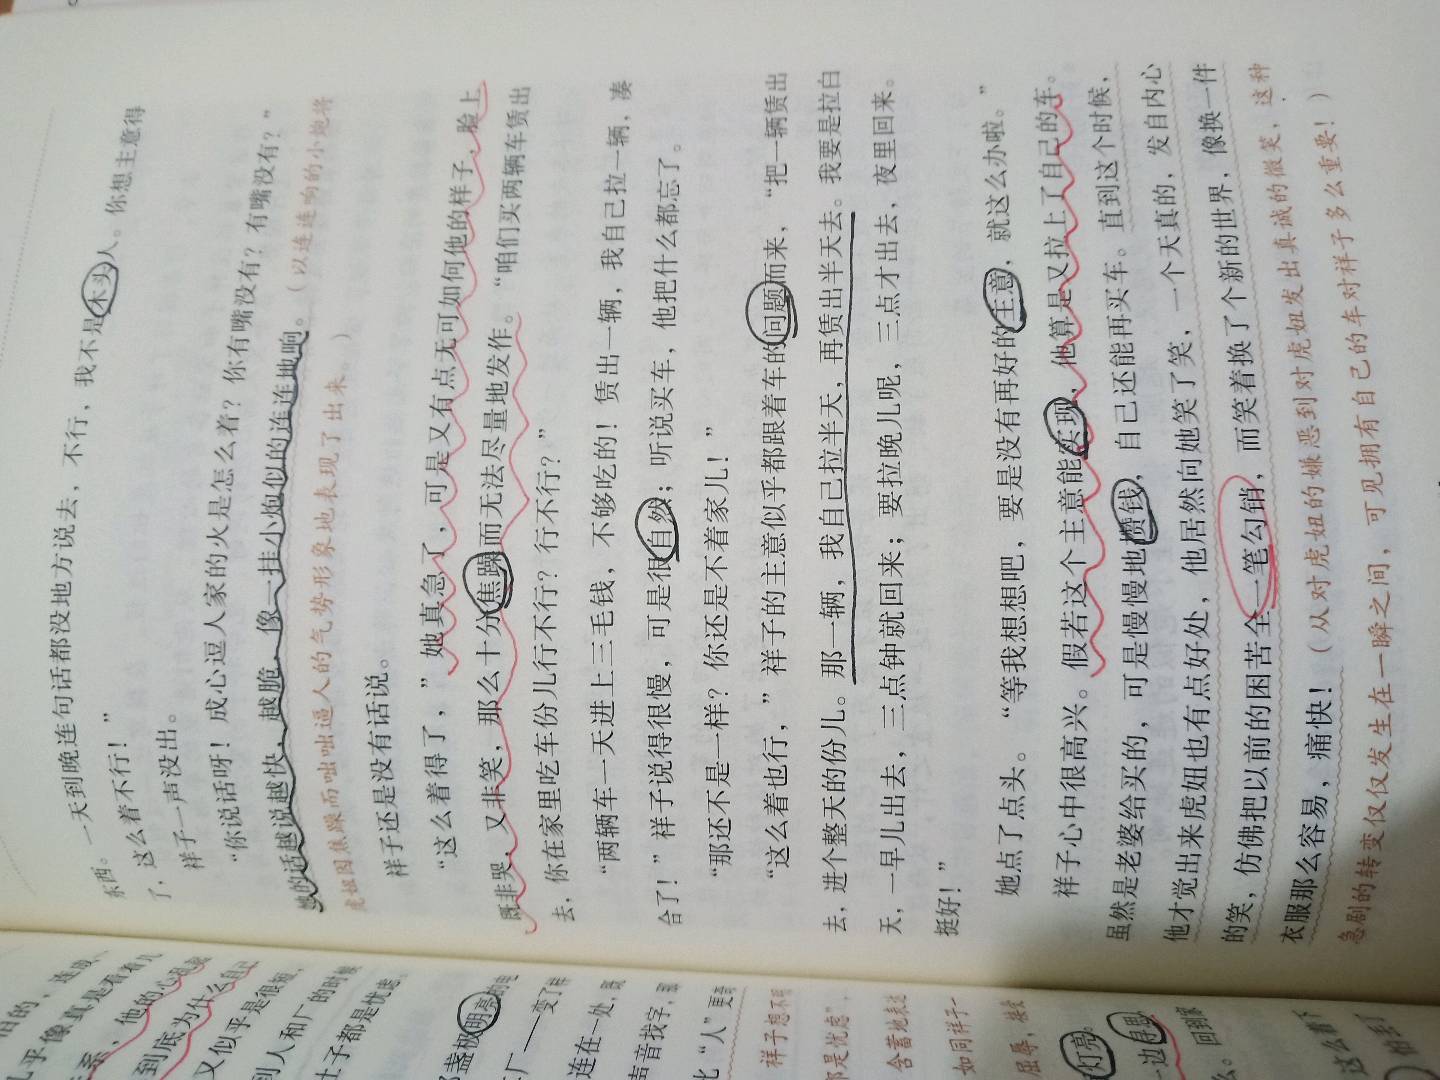 东西。一天到晚连句话都没地方说去，不行，我不是木头人。你想主意得
了，这么着不行！”
祥子一声没出。
“你说话呀！成心逗人家的火是怎么着？你有嘴没有？有嘴没有？”
她的话越说越快，越脆，像一挂小炮似的连连地响。（以连连响的小炮将
虎妞因焦躁而咄咄逼人的气势形象地表现了出来。）
祥子还是没有话说。
“这么着得了，”她真急了，可是又有点无可如何他的样子，脸上
既非哭，又非笑，那么十分焦躁而无法尽量地发作。“咱们买两辆车赁出
去，你在家里吃车份儿行不行？行不行？”
“两辆车一天进上三毛钱，不够吃的！赁出一辆，我自己拉一辆，凑
合了！”祥子说得很慢，可是很自然；听说买车，他把什么都忘了。
“那还不是一样？你还是不着家儿！”
“这么着也行，”祥子的主意似乎都跟着车的问题而来，“把一辆赁出
去，进个整天的份儿。那一辆，我自己拉半天，再赁出半天去。我要是拉白
天，一早儿出去，三点钟就回来；要拉晚儿呢，三点才出去，夜里回来。
挺好！”
她点了点头。“等我想想吧，要是没有再好的主意，就这么办啦。”
祥子心中很高兴。假若这个主意能实现，他算是又拉上了自己的车。
虽然是老婆给买的，可是慢慢地攒钱，自己还能再买车。直到这个时候，
他才觉出来虎妞也有点好处，他居然向她笑了笑，一个天真的，发自内心
的笑，仿佛把以前的困苦全一笔勾销，而笑着换了个新的世界，像换一件
衣服那么容易，痛快！（从对虎妞的嫌恶到对虎妞发出真诚的微笑，这种
急剧的转变仅仅发生在一瞬之间，可见拥有自己的车对祥子多么重要！）
旧的，连动、
几乎像真是看着儿
他的心
到底为什么自己
又似乎是很短，
到人和厂的时候
士子都是忧虑。
盏极明亮的电
厂——变了样
连在一处，既
声音找字，
“人”更
祥子想不
都是忧虑”，
含蓄地表达
如同祥子一
屈辱，接受
灯亮。
一边思
。回到
这么着下